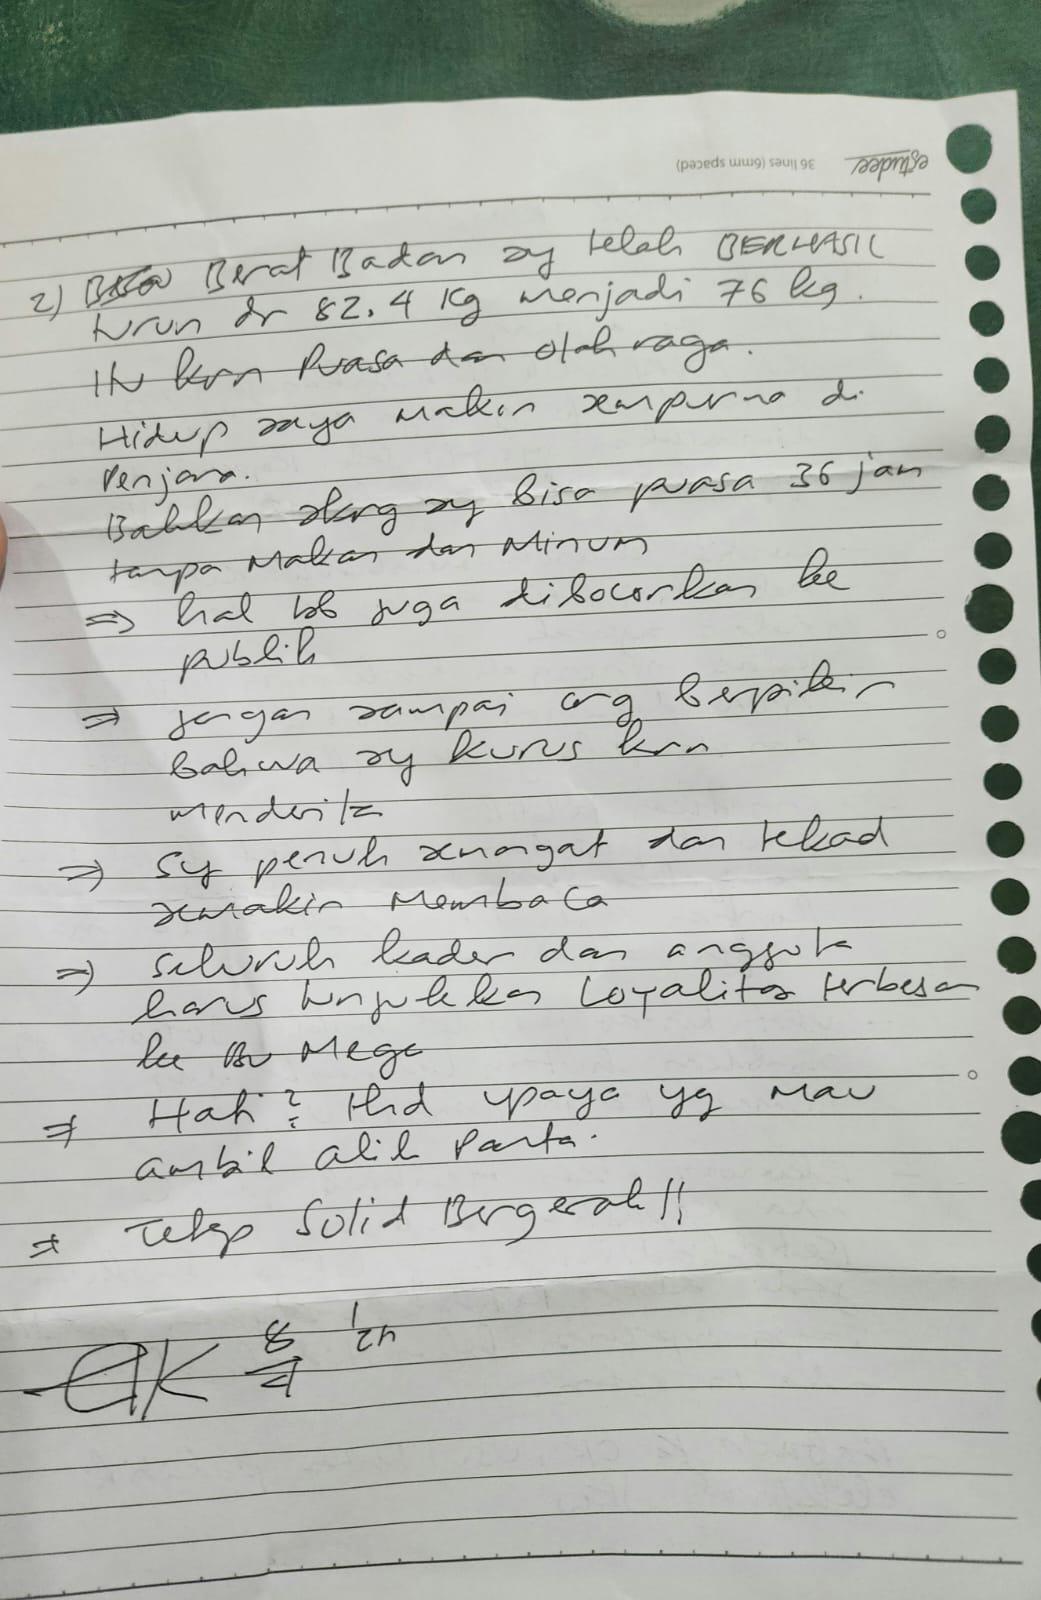 estudee 36 lines (6mm spaced)
2) Berat Badan sy telah BERHASIL
turun dr 82.4 kg menjadi 76 kg.
Itu krn Puasa dan olah raga.
Hidup saya makin sempurna di
Penjara.
Bahkan skrg sy bisa puasa 36 jam
tanpa Makan dan Minum
⇒ hal tsb juga dibocorkan ke
publik
⇒ jangan sampai org berpikir
bahwa sy kurus krn
menderita
⇒ Sy penuh semangat dan tekad
semakin Membaca
⇒ seluruh kader dan anggota
harus tunjukkan Loyalitas terbesar
ke Bu Mega
⇒ Hati2 thd upaya yg mau
ambil alih Partai.
⇒ Tetap Solid Bergerak!!
8